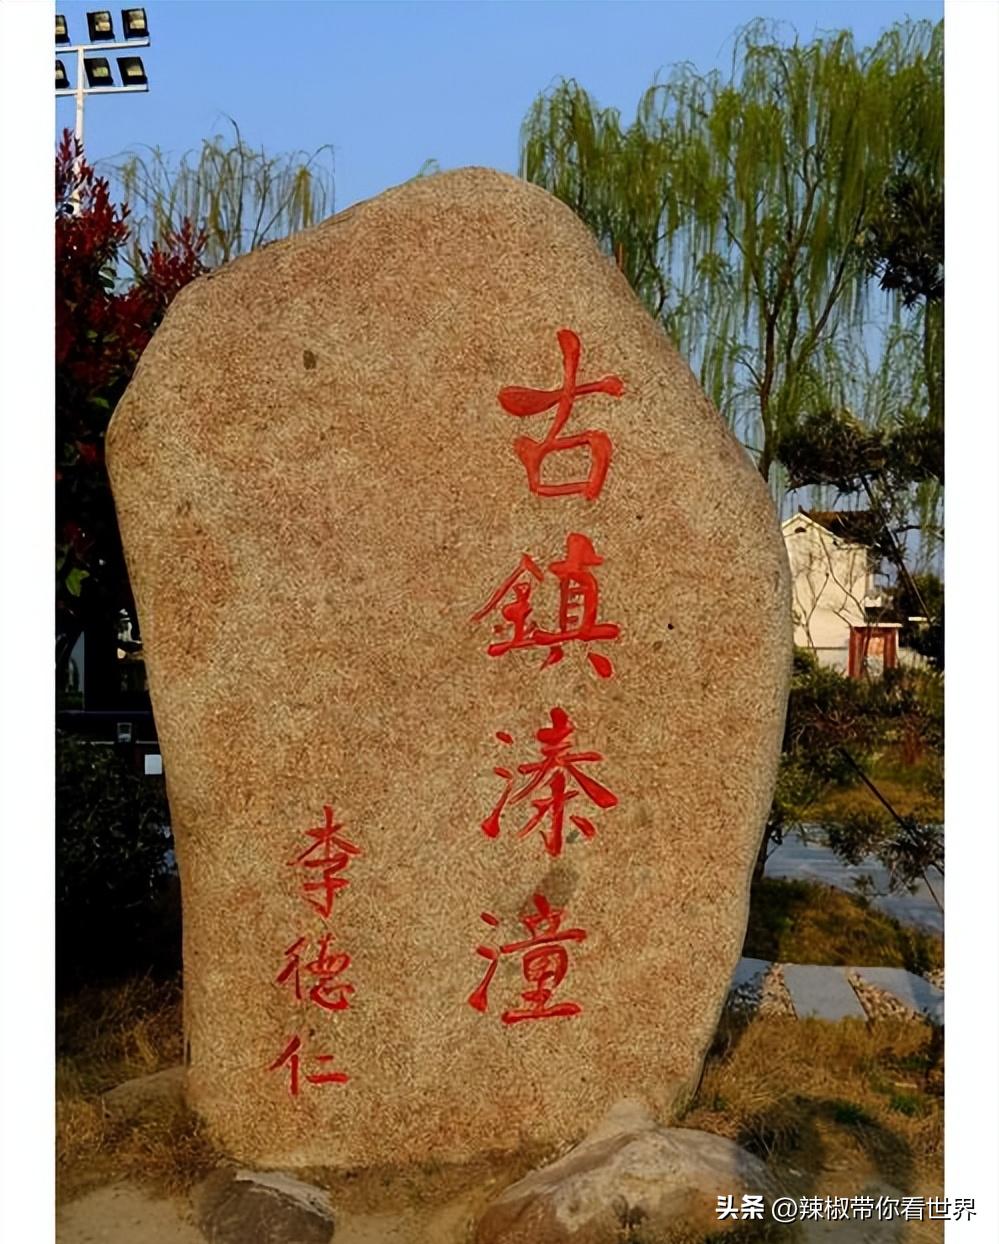 古鎮溱潼
李德仁
头条 @辣椒带你看世界